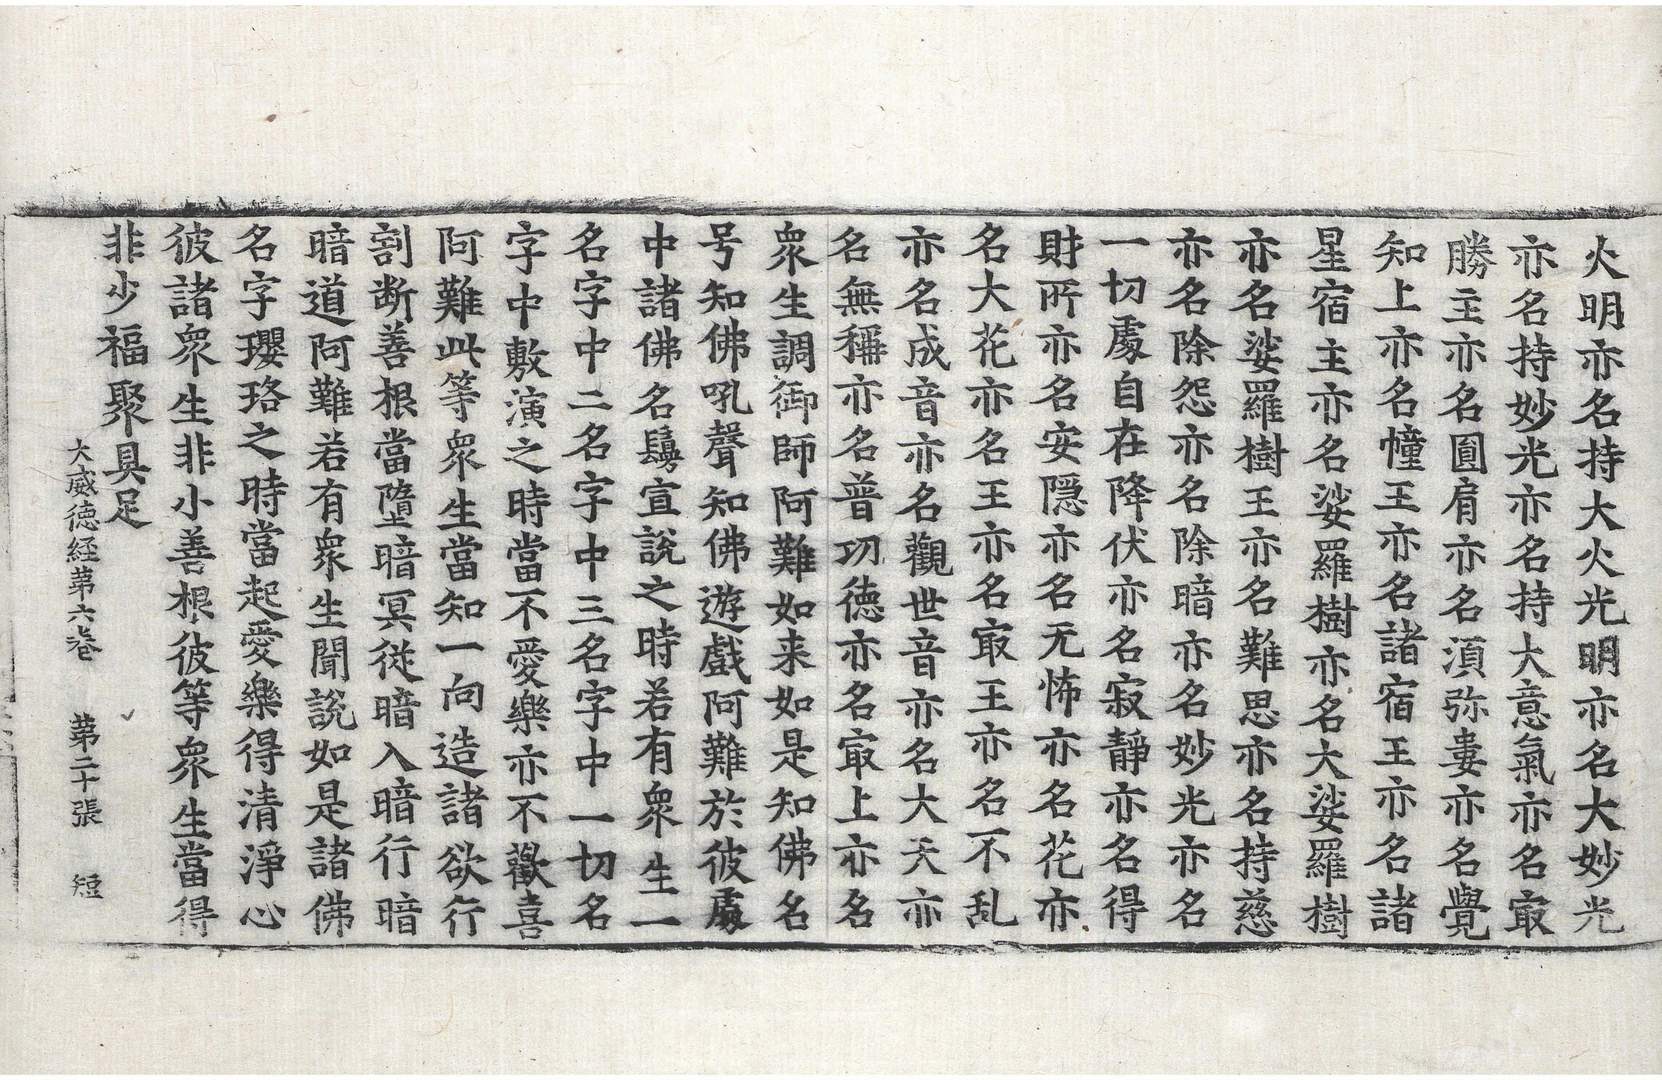 火明亦名持大火光明亦名大妙光
亦名持妙光亦名持大意氣亦名㝡
勝主亦名圓肩亦名湏弥婁亦名覺
知上亦名幢王亦名諸宿王亦名諸
星宿主亦名娑羅樹亦名大娑羅樹
亦名娑羅樹王亦名難思亦名持慈
亦名除怨亦名除暗亦名妙光亦名
一切處自在降伏亦名寂靜亦名得
財所亦名安隠亦名无怖亦名花亦
名大花亦名王亦名㝡王亦名不乱
亦名成音亦名觀世音亦名大天亦
名無稱亦名普功德亦名㝡上亦名
衆生調御師阿難如来如是知佛名
号知佛吼聲知佛遊戲阿難於彼處
中諸佛名鬘宣說之時若有衆生一
名字中二名字中三名字中一切名
字中敷演之時當不愛樂亦不歡喜
阿難此等衆生當知一向造諸欲行
割断善根當墮暗冥従暗入暗行暗
暗道阿難若有衆生聞說如是諸佛
名字瓔珞之時當起愛樂得清淨心
彼諸衆生非小善根彼等衆生當得
非少福聚具足
大威德経第六巻 第二十張 短